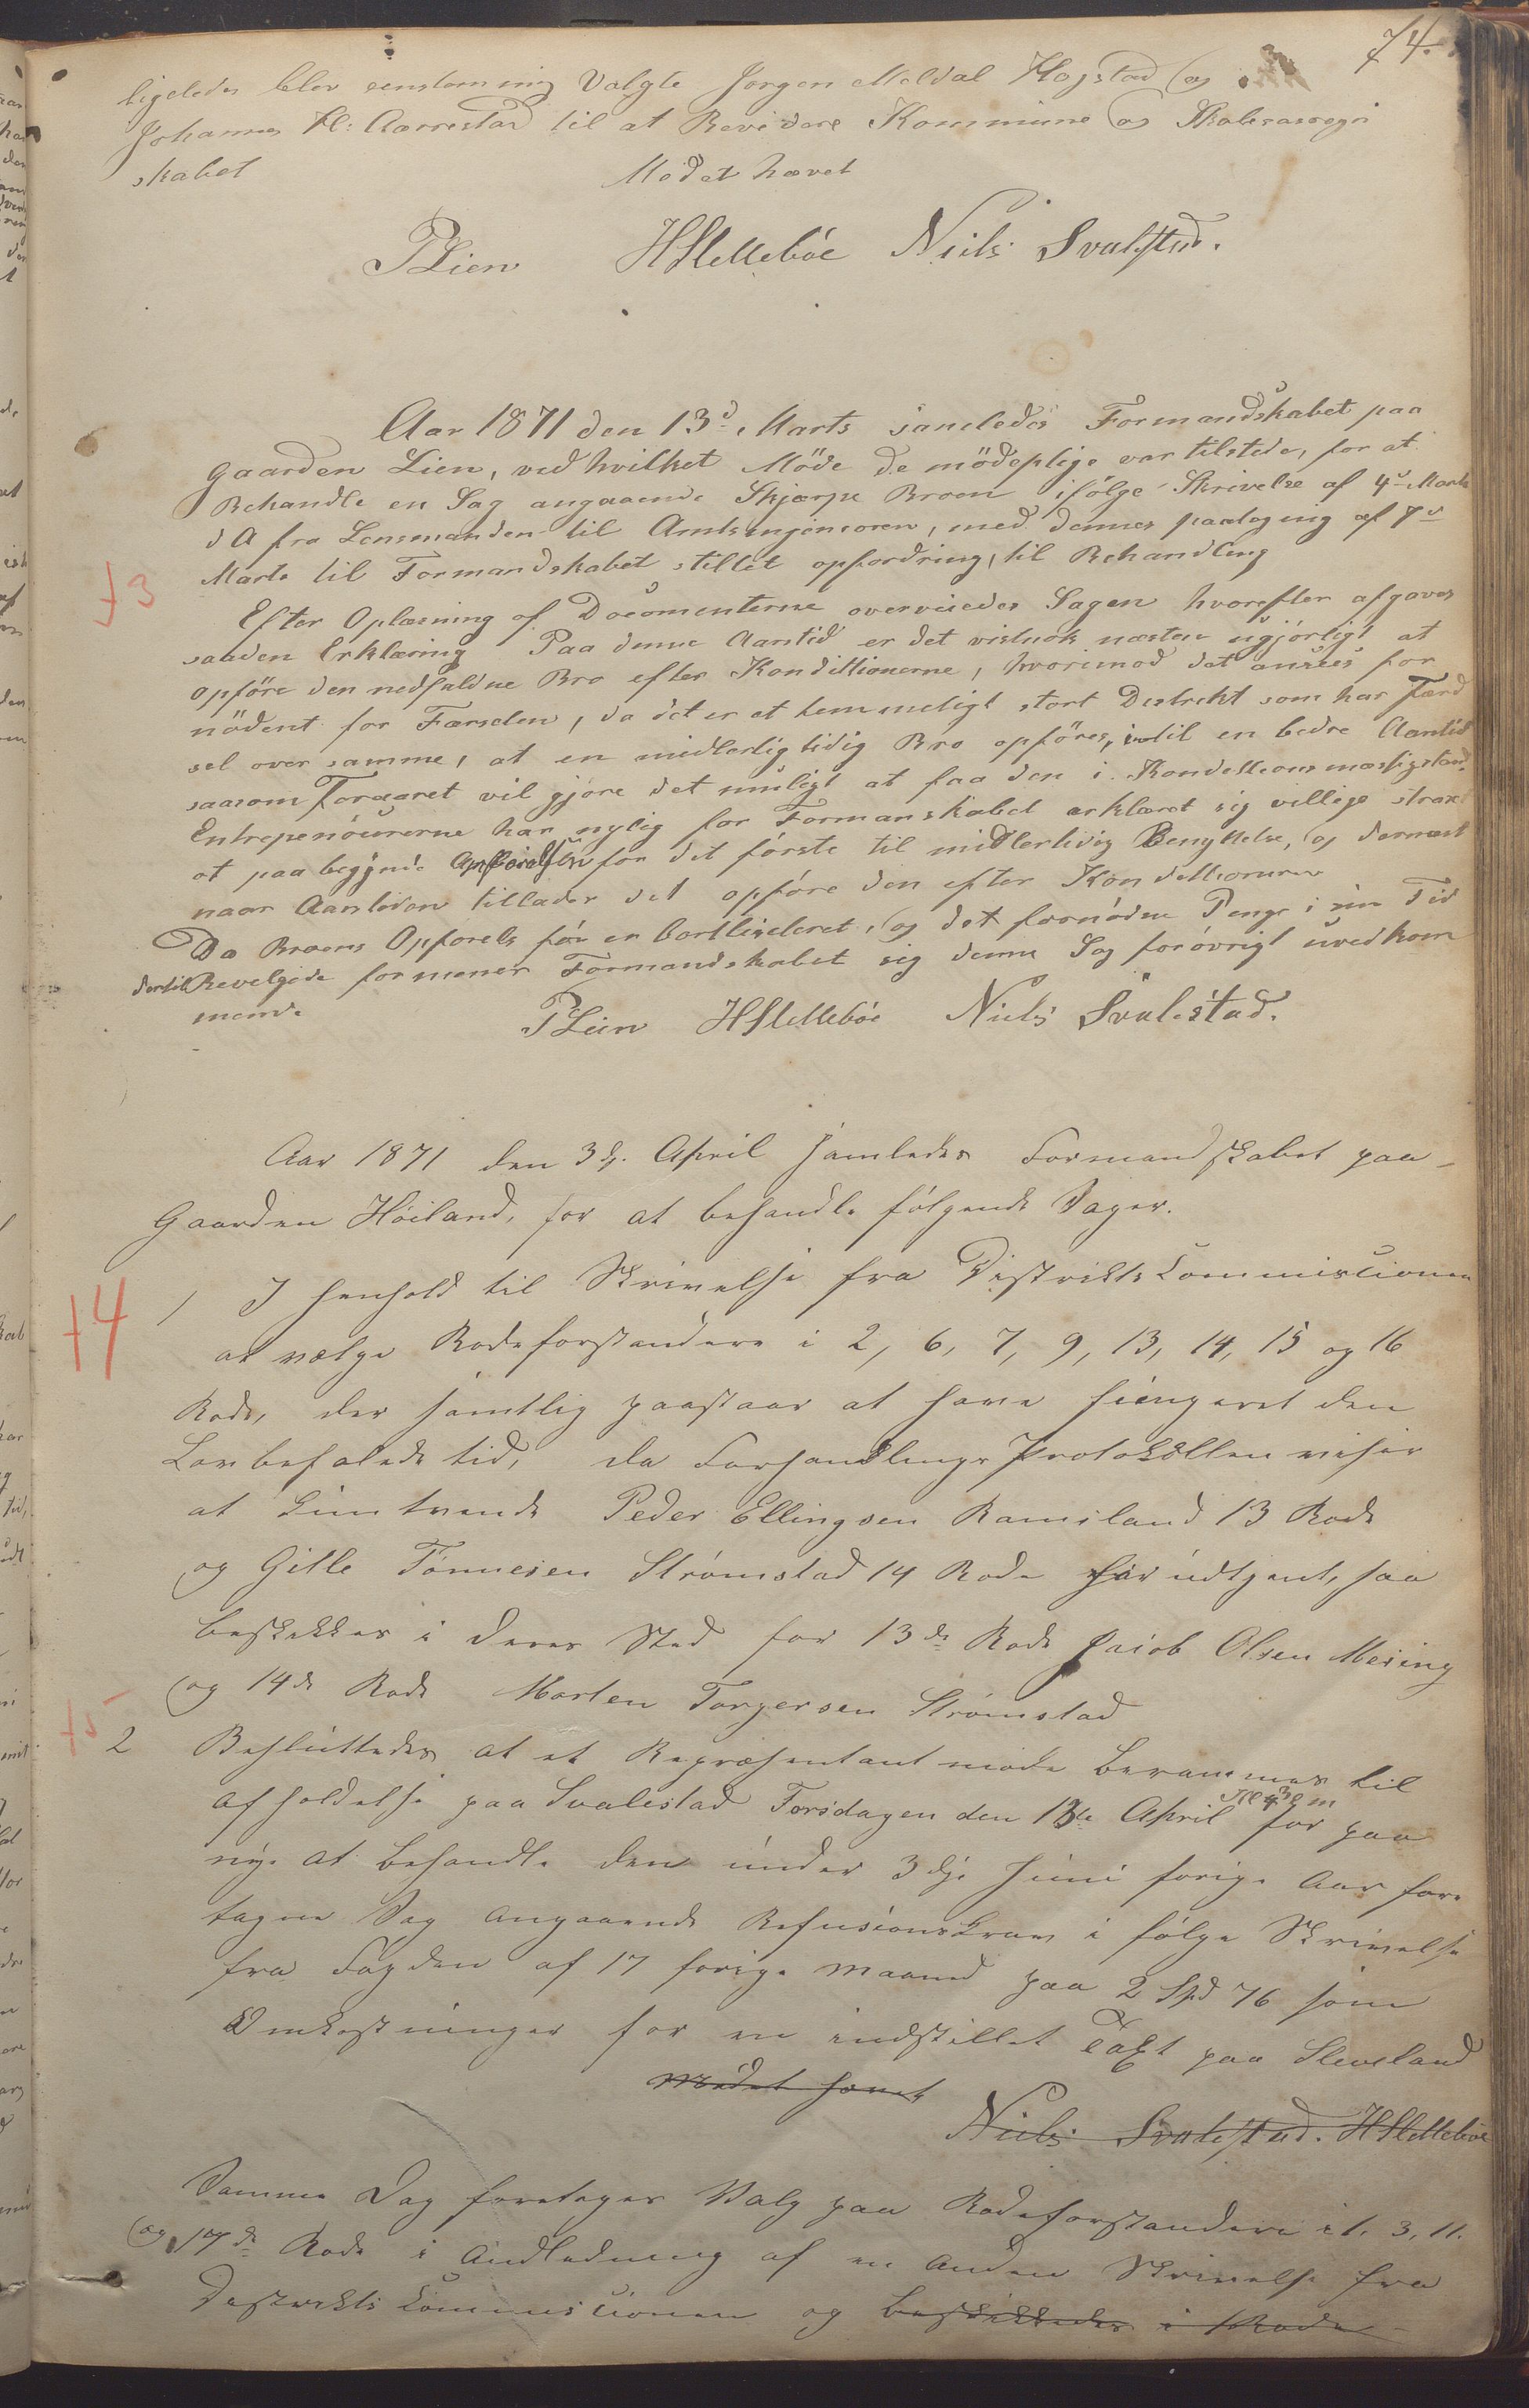 74.
ligeledes blev eenstemmig Valgte Jørgen Meldal Hogstad og
Johannes Kl: Aarrestad til at Revidere Kommune og Skolecasseregn
skabet
Mødet hævet
PLien HSlettebøe Niels Svalestad.
Aar 1871 den 13d Marts samledes Formandskabet paa
gaarden Lien, ved hvilket Møde de mødeplige var tilstede, for at
Behandle en Sag angaaende Skjærpe Broen ifølge Skrivelse af 4d Marts
d A fra Lensmanden til Amtsingenieoren, med dennes paategnig af 7d
Marts til Formandskabet stillet opfordring, til Behandling
+3
Efter Oplæsning af Documenterne overveiedes Sagen hvorefter afgaves
saaden Erklæring Paa denne Aarstid er det vistnok næsten ugjørligt at
opføre den nedfaldne Bro efter Kondittionerne, hvorimod det ansees for
nødent for Færselen, da det er et temmeligt stort Destrikt som har Færd
sel over samme, at en midlerlig tidig Bro opføres, indtil en bedre Aarstid
saasom Foraaret vil gjøre det muligt at faa den i Kondettionsmæssigstand.
Entrepenøurerne har nylig for Formanskabet erklæret sig villige straxt
at paabegynde Opførelsen for det første til midlertidig Benyttelse, og dernæst
naar Aarstiden tillader det opføre den efter Kondettionerne
Da Broens Opførels før er bortliciteret, og det fornødne Penge i sin Tid
dertil Bevelgede formener Formandskabet sig denne Sag forøvrigt uvedkom
mende
PLien HSlettebøe Niels Svalestad.
Aar 1871 den 3die April samledes Formandskabet paa
Gaarden Høiland, for at behandle følgende Sager.
+4
1 I henhold til Skrivelse fra Districts Commissionen
at vælge Rodeforstandere i 2, 6, 7, 9, 13, 14, 15 og 16
Rode, der samtlig paastaar at have fungeret den
Lovbefalede tid, da Forhandlings Protokollen viser
at kun tvende Peder Ellingsen Ramsland 13 Rode
og Gitle Tønnesen Strømstad 14 Rode har udtjent, saa
beskikkes i deres Sted for 13de Rode Jacob Olsen Mesing
og 14de Rode Morten Torgersen Strømstad
+5
2 Besluttedes at et Repræsentantmøde berammes til
afholdelse paa Svalestad Torsdagen den 13de April Kl 3 em for paa
nye at behandle den under 3die Juni forige Aar fore
tagne Sag angaaende Refusionskrav i følge Skrivelse
fra Fogden af 17 forige Maaned paa 2 Spd 76 som
Omkostninger for en indstillet Taxt paa Sleveland
Mødet hævet
Niels Svalestad. HSlettebøe
Samme Dag foretages Valg paa Rodeforstandere i 1. 3, 11.
og 17de Rode i Andledning af en anden Skrivelse fra
Destrikts Commissionen og beskikkedes i 1 Rode